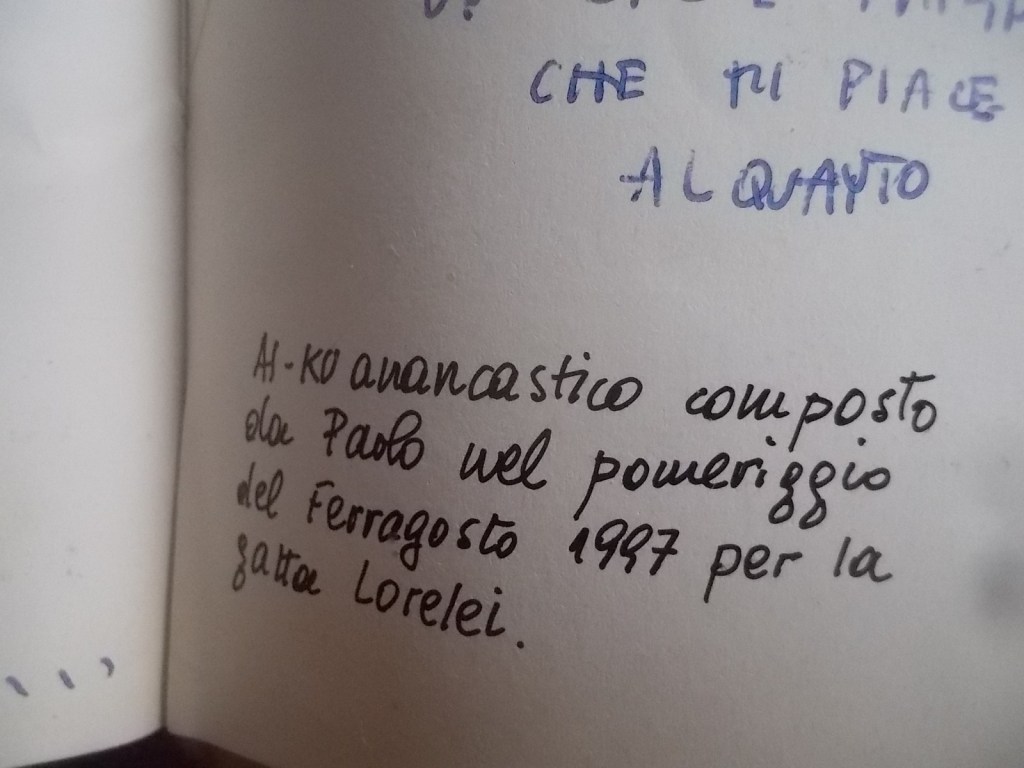 CHE TI PIACE
ALQUANTO
AI-KU anancastico composto
da Paolo nel pomeriggio
del Ferragosto 1997 per la
gatta Lorelei.